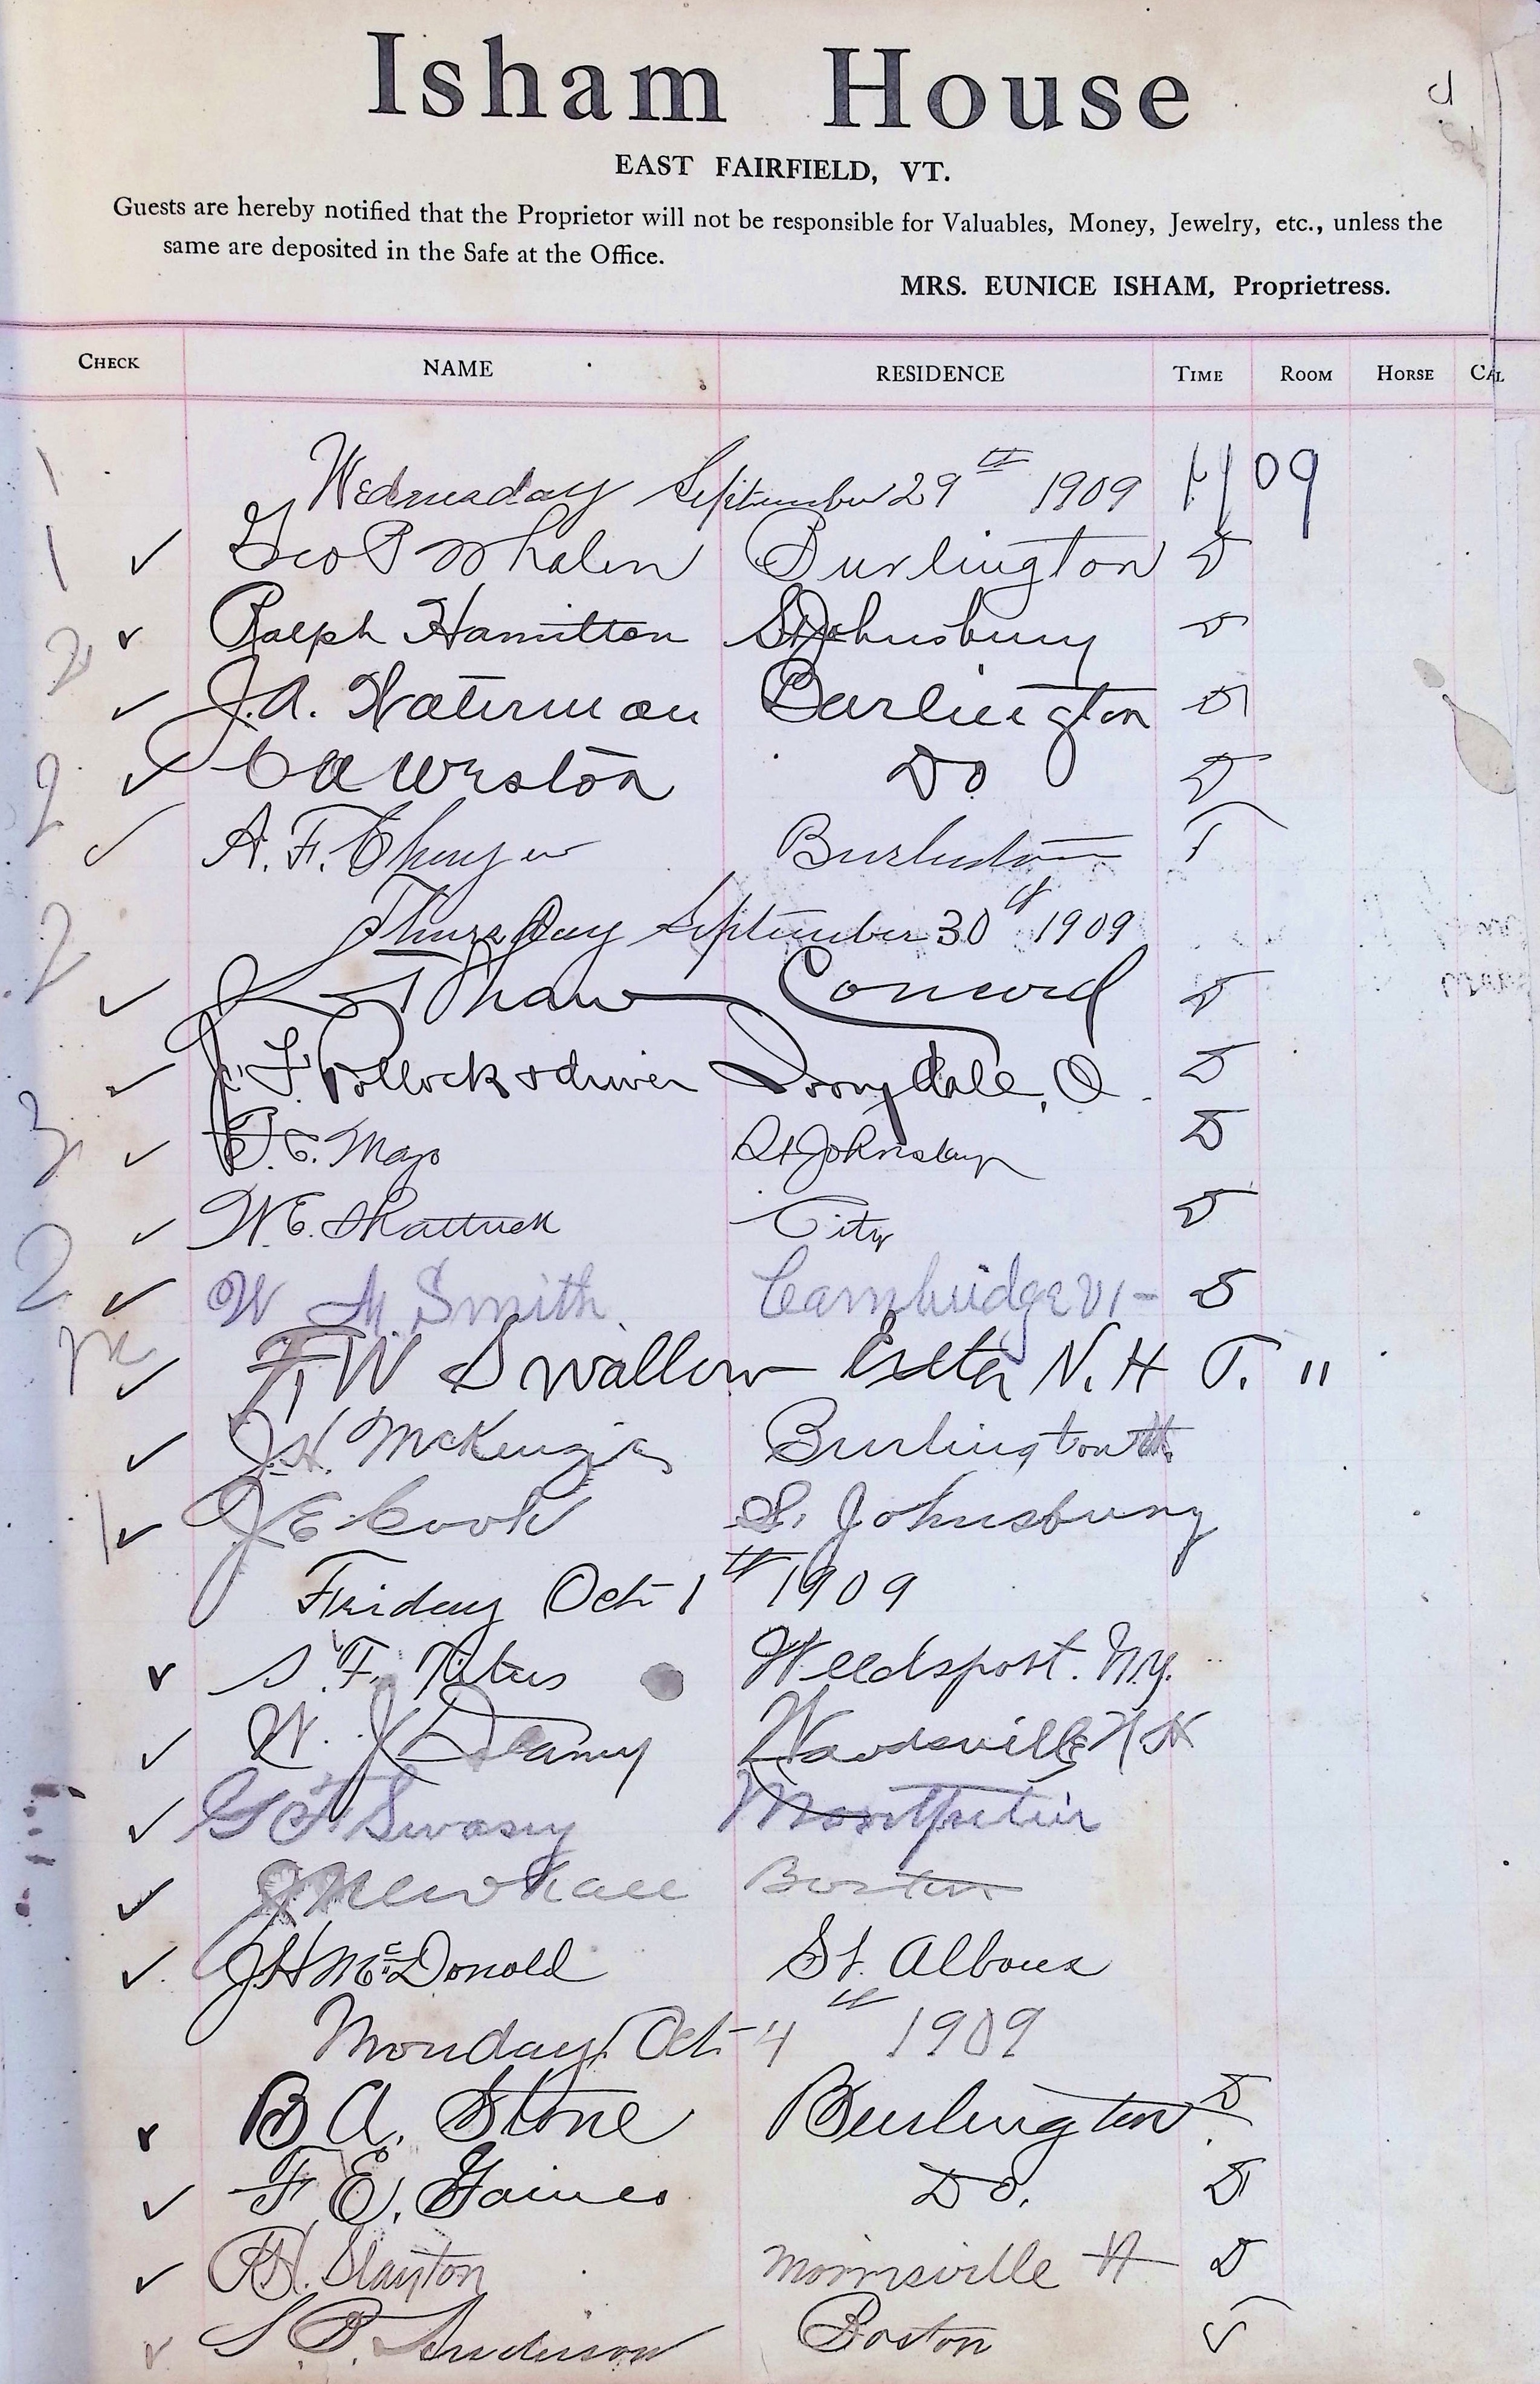 Isham House
EAST FAIRFIELD, VT.
Guests are hereby notified that the Proprietor will not be responsible for Valuables, Money, Jewelry, etc., unless the
same are deposited in the Safe at the Office.
MRS. EUNICE ISHAM, Proprietress.
CHECK NAME RESIDENCE TIME ROOM HORSE
Wednesday September 29th 1909 09
1 ✓ Geo P Whalen Burlington D
2 ✓ Ralph Hamilton St Johnsbury D
✓ J.A. Waterman Burlington D
2 ✓ C A Weston Do D
✓ A. F. Burlington
Thursday September 30th 1909
2 ✓ Shaw Concord D
✓ J. F. Pollock & driver O. D
3 ✓ F. C. Mayo St Johnsbury D
✓ W. E. Shattuck City D
2 ✓ W M Smith Cambridge Vt - D
✓ F. W Swallow Exeter N. H T. "
✓ J. H. McKenzie Burlington Vt.
1 ✓ J E Cook St. Johnsbury
Friday Oct 1th 1909
✓ S. F. Titus Weedsport. N.Y.
✓ W. J. Woodsville N H
✓ G F Swasey Montpelier
✓ J Newhall Boston
✓ J H McDonald St. Albans
Monday Oct 4th 1909
✓ B A. Stone Burlington D
✓ F. E. Gaines Do. D
✓ Slayton Morrisville Vt D
✓ S. B. Anderson Boston